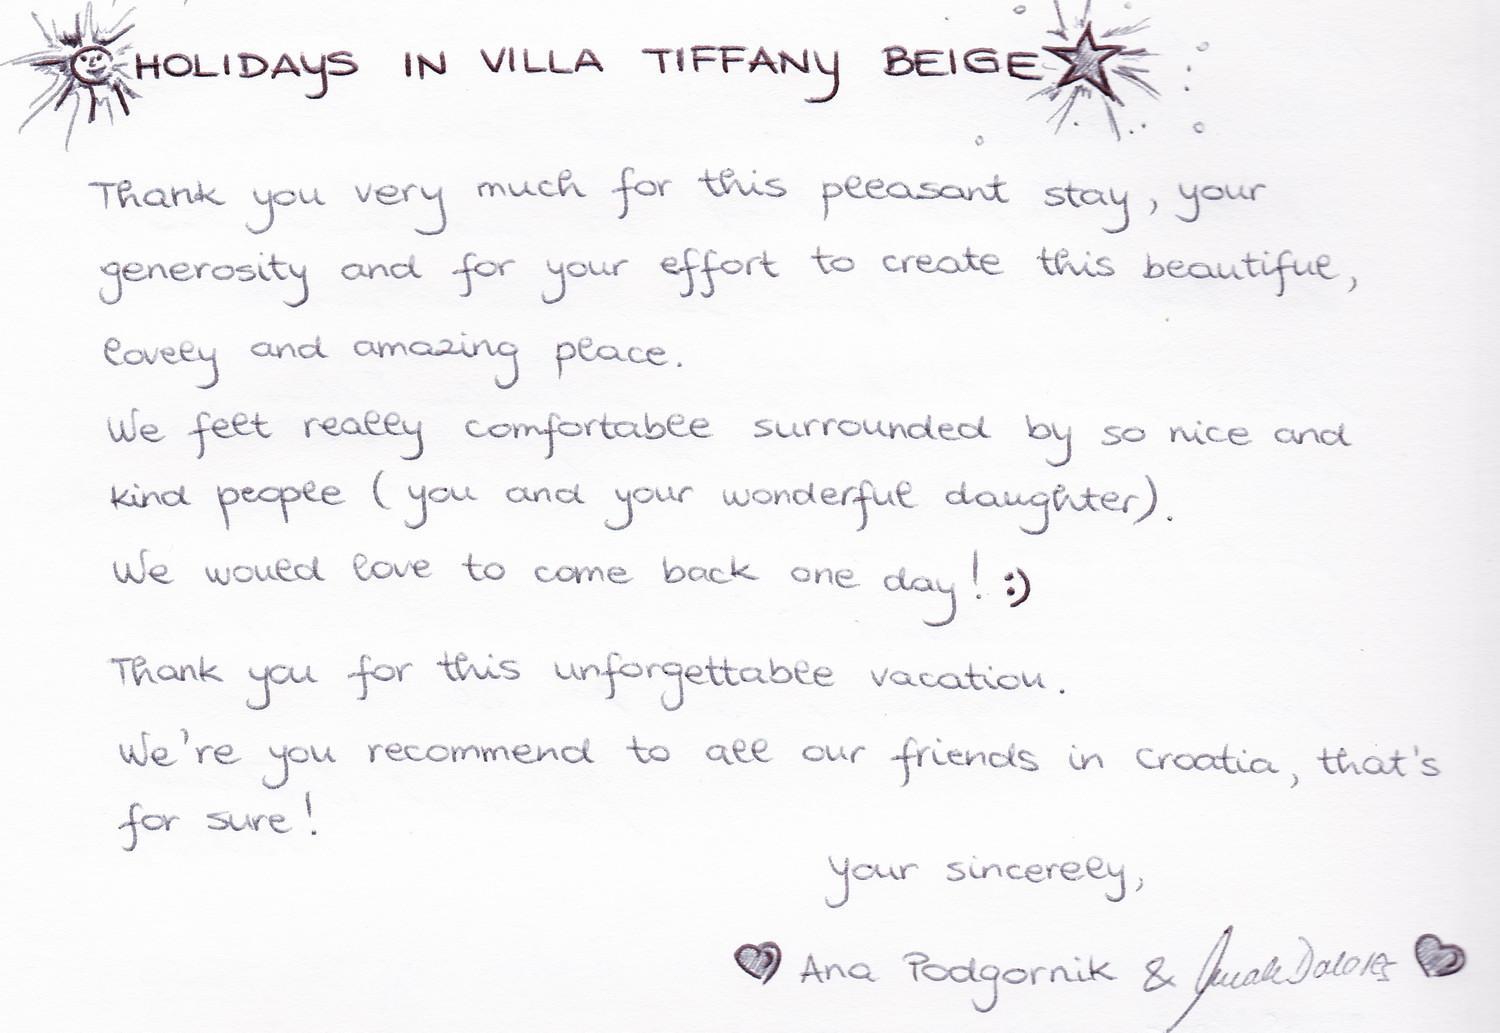 HOLIDAYS IN VILLA TIFFANY BEIGE
Thank you very much for this pleasant stay, your
generosity and for your effort to create this beautiful,
lovely and amazing place.
We felt really comfortable surrounded by so nice and
kind people (you and your wonderful daughter).
We would love to come back one day! :)
Thank you for this unforgettable vacation.
We're you recommend to all our friends in Croatia, that's
for sure!
Your sincerely,
Ana Podgornik &